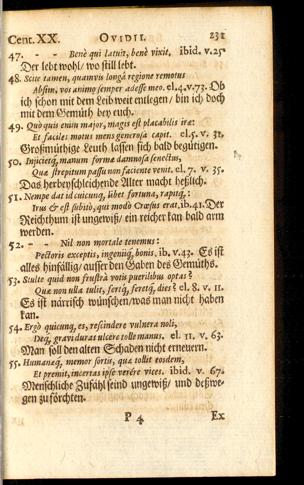 Cent. XX. OVIDII. 231
47. - - Benè qui latuit, benè vixit. ibid. v. 25
Der lebt wohl/ wo still lebt.
48. Scite tamen, quamvis longâ regione remotus
Absim, vos animo semper adesse meo. el. 4. v. 73. Ob
ich schon mit dem Leib weit entlegen/ bin ich doch
mit dem Gemüth bey euch.
49. Quò quis enim major, magis est placabilis iræ:
Et faciles motus mens generosa capit. el. 5. v. 31.
Großmüthige Leuth lassen sich bald begütigen.
50. Injicietq́; manum formæ damnosa senectus,
Quæ strepitum passu non faciente venit. el. 7. v. 35.
Das herbeyschleichende Alter macht heßlich.
51. Nempe dat id cuicunq́; libet fortuna, rapitq́;:
Irus & est subitò, qui modò Crœsus erat. ib. 41. Der
Reichthum ist ungewiß/ ein reicher kan bald arm
werden.
52. - - Nil non mortale tenemus:
Pectoris exceptis, ingeniiq́; bonis. ib. v. 43. Es ist
alles hinfällig/ ausser den Gaben des Gemüths.
53. Stulte quid non frustrà votis puerilibus optas?
Quæ non ulla tulit, fertq́;, feretq́; dies? el. 8. v. 11.
Es ist närrisch wünschen/ was man nicht haben
kan.
54. Ergò quicunq́; es, rescindere vulnera noli,
Deq́; gravi duras ulcere tolle manus. el. 11. v. 63.
Man soll den alten Schaden nicht erneuern.
55. Humanæq́; memor sortis, quæ tollit eosdem,
Et premit, incertas ipse verére vices. ibid. v. 67.
Menschliche Zufähl seind ungewiß/ und deßwe-
gen zu förchten.
P 4 Ex